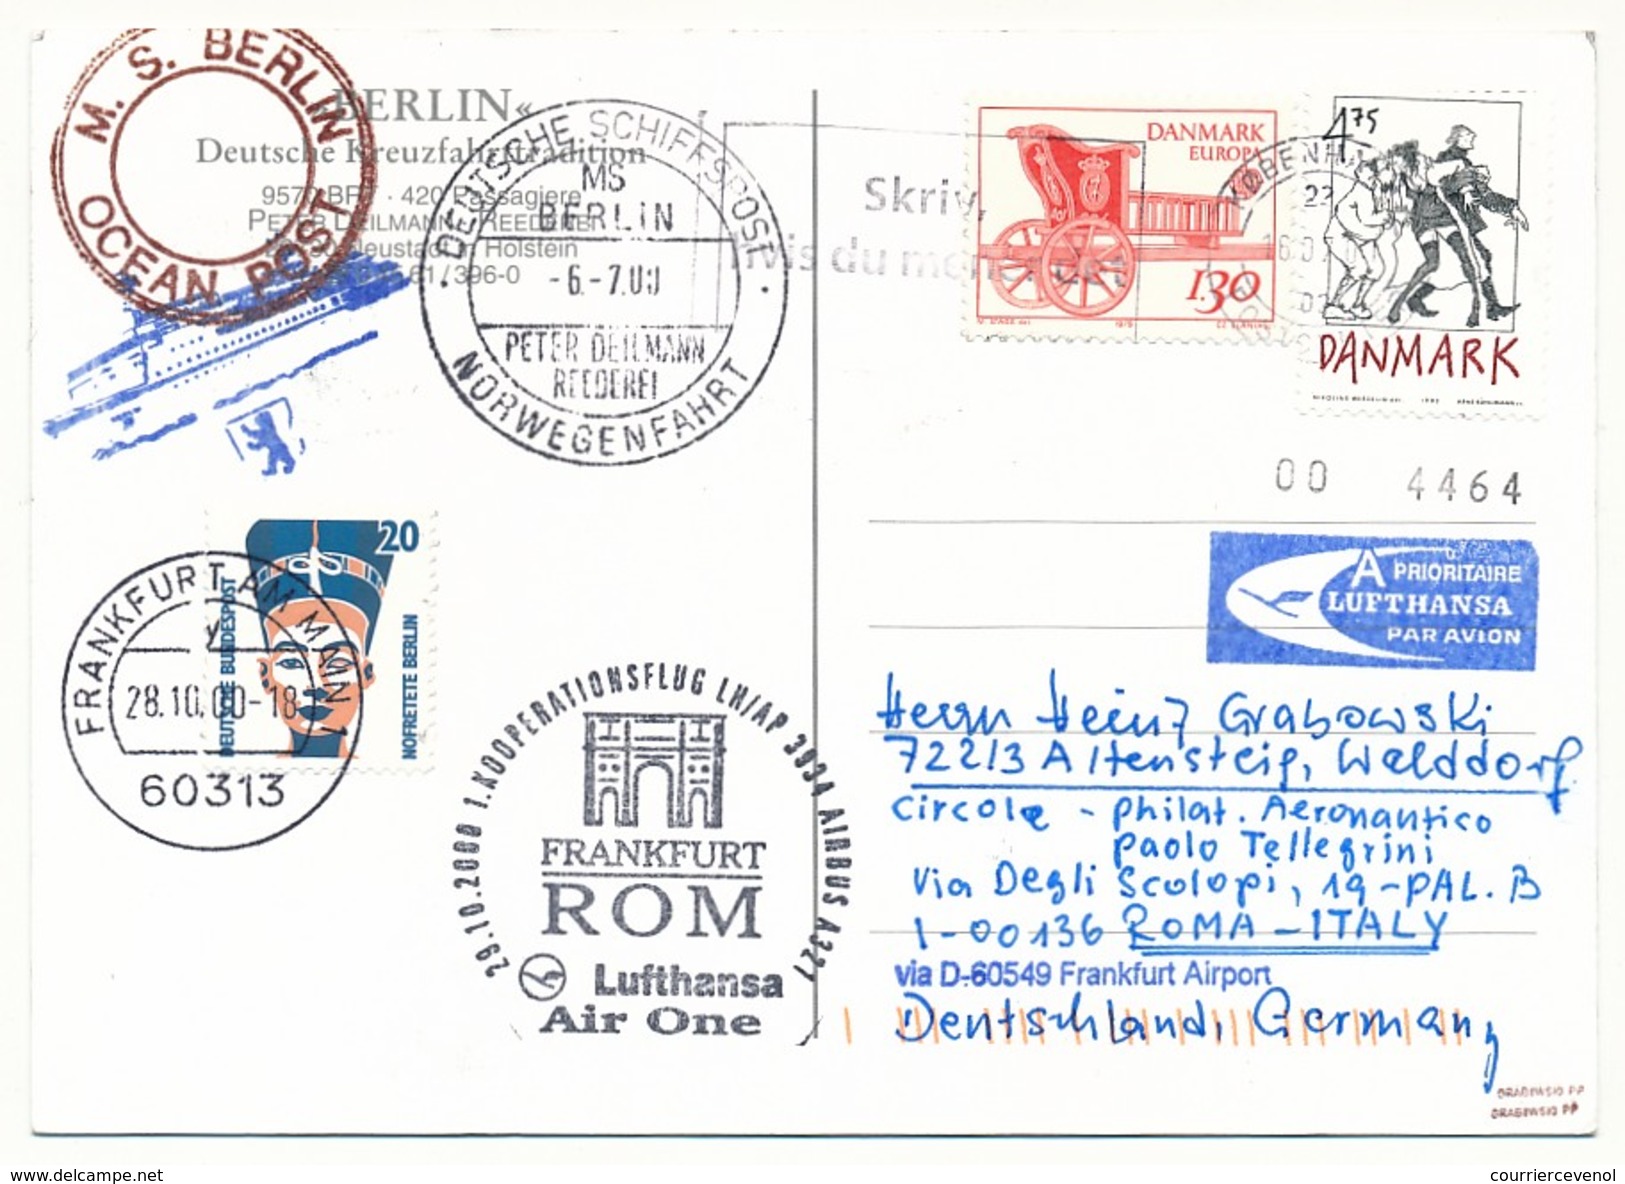 M. S. BERLIN
OCEAN POST
BERLIN«
Deutsche Kreuzfahrttradition
420 Passagiere
PETER DEILMANN REEDEREI
Neustadt in Holstein
61/396-0
DEUTSCHE SCHIFFSPOST
MS
BERLIN
-6.-7.00
PETER DEILMANN
REEDEREI
NORWEGENFAHRT
Skriv,
hvis du
DANMARK
EUROPA
1.30
1979
KØBENHA
475
DANMARK
00 4464
20
DEUTSCHE BUNDESPOST
NOFRETETE BERLIN
FRANKFURT AM MAIN 1
y
28.10.00-18
60313
29.10.2000 1.KOOPERATIONSFLUG LH/AP 3934 AIRBUS A321
FRANKFURT
ROM
Lufthansa
Air One
A PRIORITAIRE
LUFTHANSA
PAR AVION
Herrn Heinz Grabowski
72213 Altensteig, Walddorf
Circolo - Philat. Aeronautico
Paolo Tellegrini
Via Degli Scolopi, 19-PAL. B
I-00136 ROMA-ITALY
via D-60549 Frankfurt Airport
Deutschland, Germany
courriercevenol